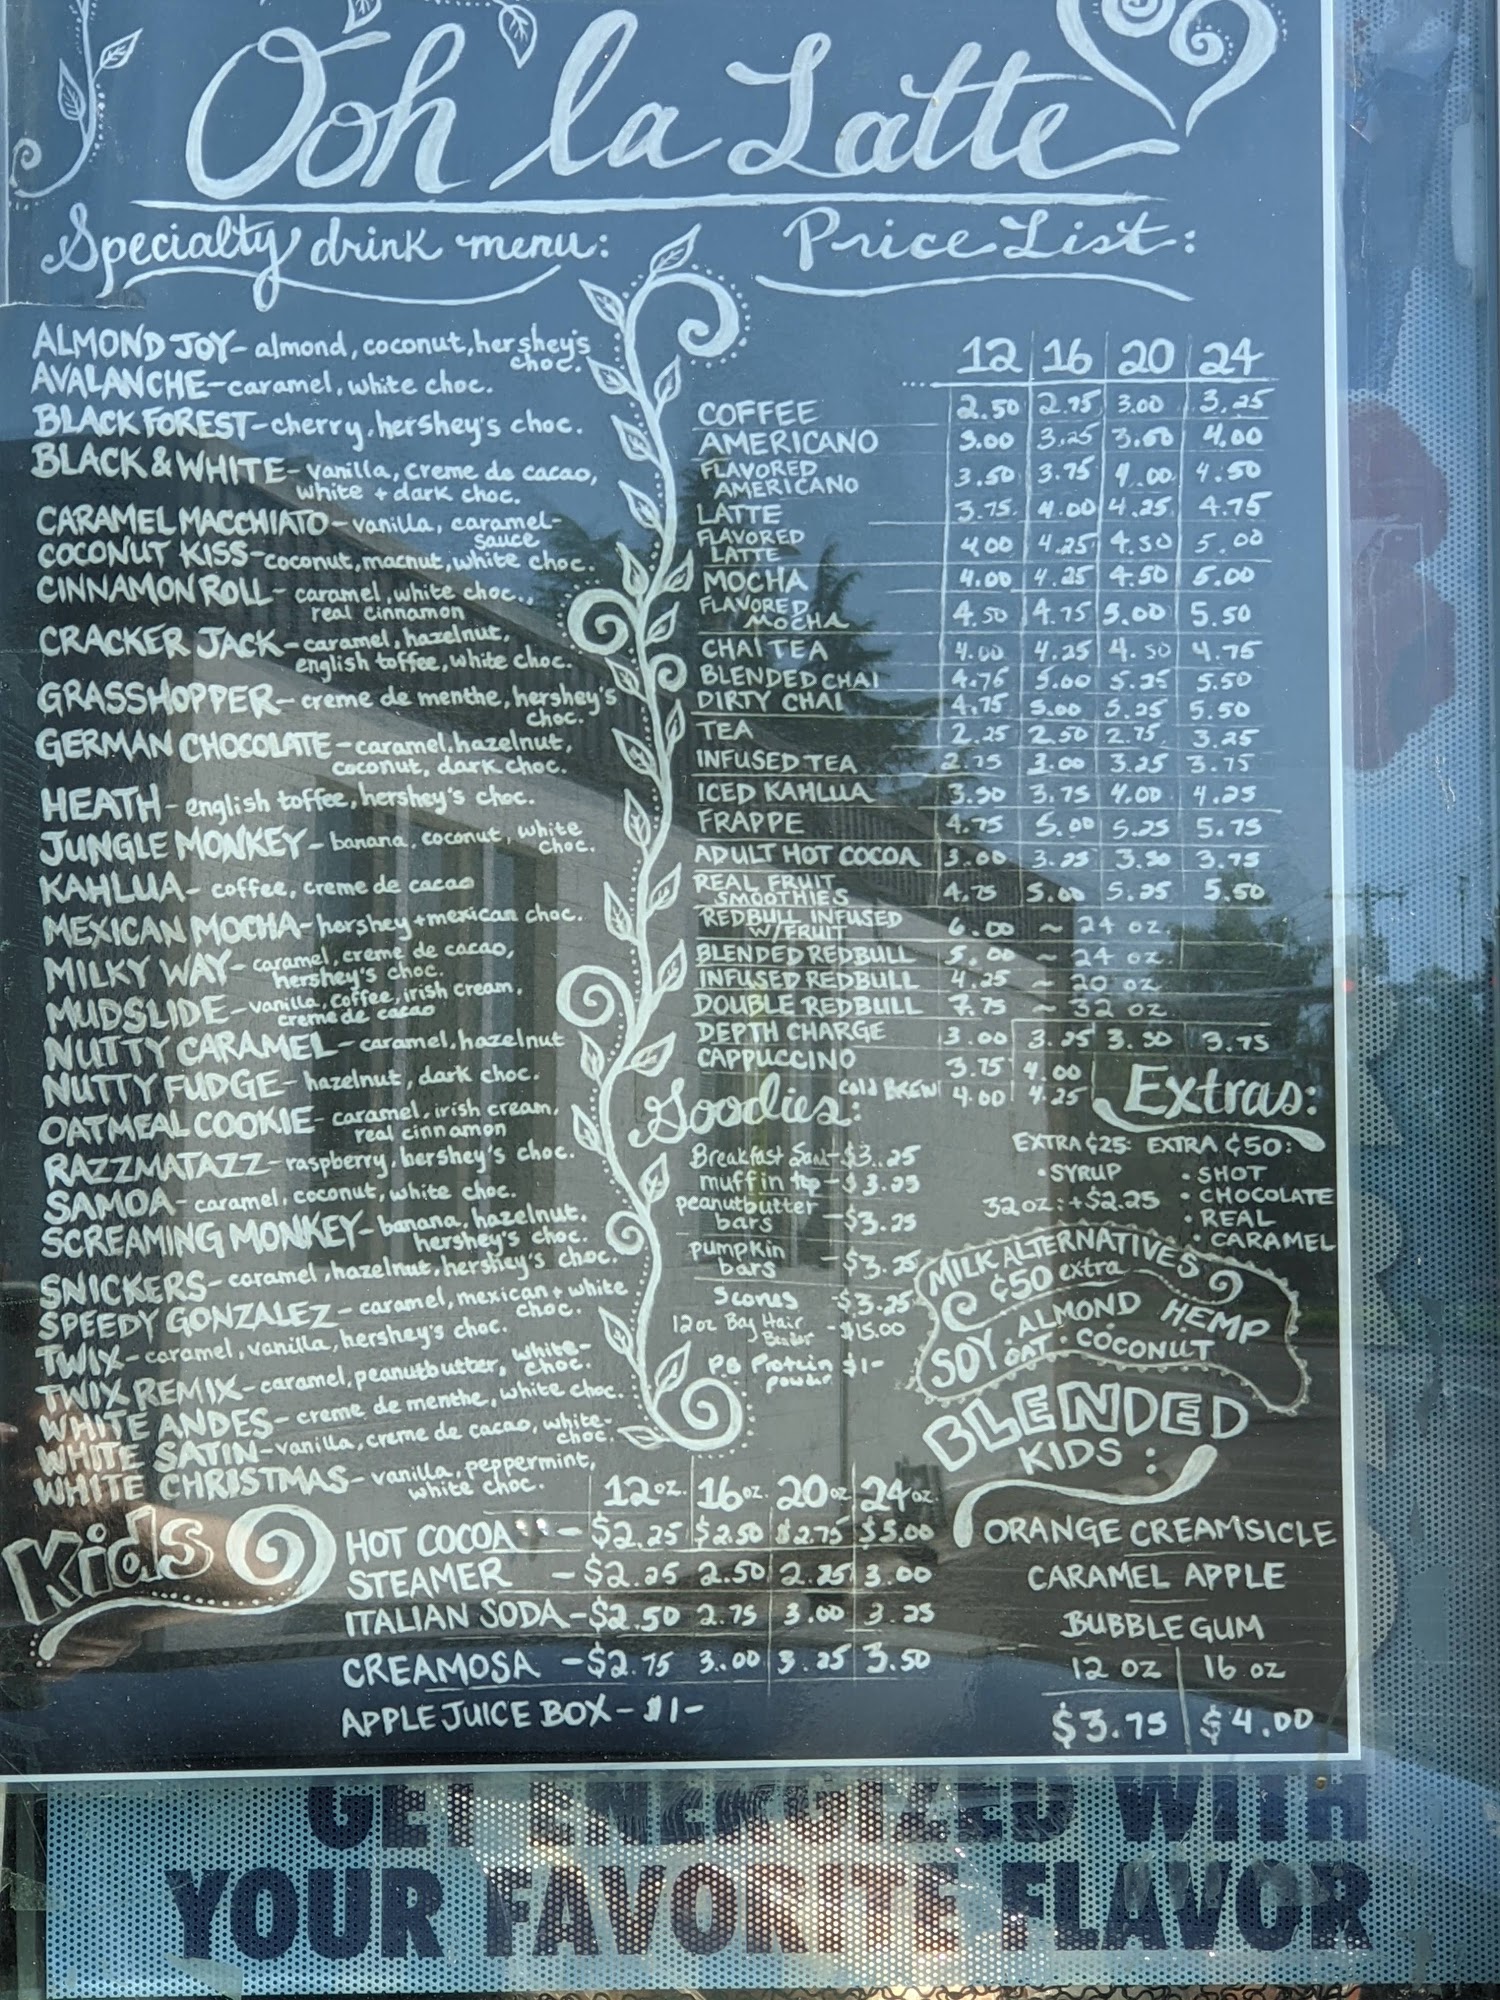 Ooh la Latte
Specialty drink menu:
ALMOND JOY- almond, coconut, hershey's
choc.
AVALANCHE- caramel, white choc.
BLACK FOREST- cherry, hershey's choc.
BLACK & WHITE- vanilla, creme de cacao,
white + dark choc.
CARAMEL MACCHIATO- vanilla, caramel-
sauce
COCONUT KISS- coconut, macnut, white choc.
CINNAMON ROLL- caramel, white choc.,
real cinnamon
CRACKER JACK- caramel, hazelnut,
english toffee, white choc.
GRASSHOPPER- creme de menthe, hershey's
choc.
GERMAN CHOCOLATE- caramel, hazelnut,
coconut, dark choc.
HEATH- english toffee, hershey's choc.
JUNGLE MONKEY- banana, coconut, white
choc.
KAHLUA- coffee, creme de cacao
MEXICAN MOCHA- hershey + mexican choc.
MILKY WAY- caramel, creme de cacao,
hershey's choc.
MUDSLIDE- vanilla, coffee, irish cream,
creme de cacao
NUTTY CARAMEL- caramel, hazelnut
NUTTY FUDGE- hazelnut, dark choc.
OATMEAL COOKIE- caramel, irish cream,
real cinnamon
RAZZMATAZZ- raspberry, hershey's choc.
SAMOA- caramel, coconut, white choc.
SCREAMING MONKEY- banana, hazelnut,
hershey's choc.
SNICKERS- caramel, hazelnut, hershey's choc.
SPEEDY GONZALEZ- caramel, mexican + white
choc.
TWIX- caramel, vanilla, hershey's choc.
TWIX REMIX- caramel, peanutbutter, white-
choc.
WHITE ANDES- creme de menthe, white choc.
WHITE SATIN- vanilla, creme de cacao, white-
choc.
WHITE CHRISTMAS- vanilla, peppermint,
white choc.
Price List:
12 16 20 24
COFFEE 2.50 2.75 3.00 3.25
AMERICANO 3.00 3.25 3.50 4.00
FLAVORED
AMERICANO 3.50 3.75 4.00 4.50
LATTE 3.75 4.00 4.25 4.75
FLAVORED
LATTE 4.00 4.25 4.50 5.00
MOCHA 4.00 4.25 4.50 5.00
FLAVORED
MOCHA 4.50 4.75 5.00 5.50
CHAI TEA 4.00 4.25 4.50 4.75
BLENDED CHAI 4.75 5.00 5.25 5.50
DIRTY CHAI 4.75 5.00 5.25 5.50
TEA 2.25 2.50 2.75 3.25
INFUSED TEA 2.75 3.00 3.25 3.75
ICED KAHLUA 3.50 3.75 4.00 4.25
FRAPPE 4.75 5.00 5.25 5.75
ADULT HOT COCOA 3.00 3.25 3.50 3.75
REAL FRUIT
SMOOTHIES 4.75 5.00 5.25 5.50
REDBULL INFUSED
W/FRUIT 6.00 ~ 24 oz.
BLENDED REDBULL 5.00 ~ 24 oz.
INFUSED REDBULL 4.25 ~ 20 oz
DOUBLE REDBULL 7.75 ~ 32 oz
DEPTH CHARGE 3.00 3.25 3.50 3.75
CAPPUCCINO 3.75 4.00
COLD BREW 4.00 4.25
Goodies:
Breakfast Sand- $3.25
muffin top- $3.25
peanutbutter
bars - $3.25
pumpkin
bars - $3.25
Scones - $3.25
12oz Bag Hair
- $15.00
PB Protein $1-
powder
Extras:
EXTRA ¢25: EXTRA ¢50:
• SYRUP • SHOT
32oz: + $2.25 • CHOCOLATE
• REAL
• CARAMEL
MILK ALTERNATIVES
¢50 extra
SOY • ALMOND HEMP
OAT • COCONUT
BLENDED
KIDS:
ORANGE CREAMSICLE
CARAMEL APPLE
BUBBLEGUM
12 oz 16 oz
$3.75 $4.00
Kids
12oz. 16oz. 20oz 24oz.
HOT COCOA - $2.25 $2.50 $2.75 $3.00
STEAMER - $2.25 2.50 2.75 3.00
ITALIAN SODA - $2.50 2.75 3.00 3.25
CREAMOSA - $2.75 3.00 3.25 3.50
APPLE JUICE BOX - $1-
GET ENERGIZED WITH
YOUR FAVORITE FLAVOR